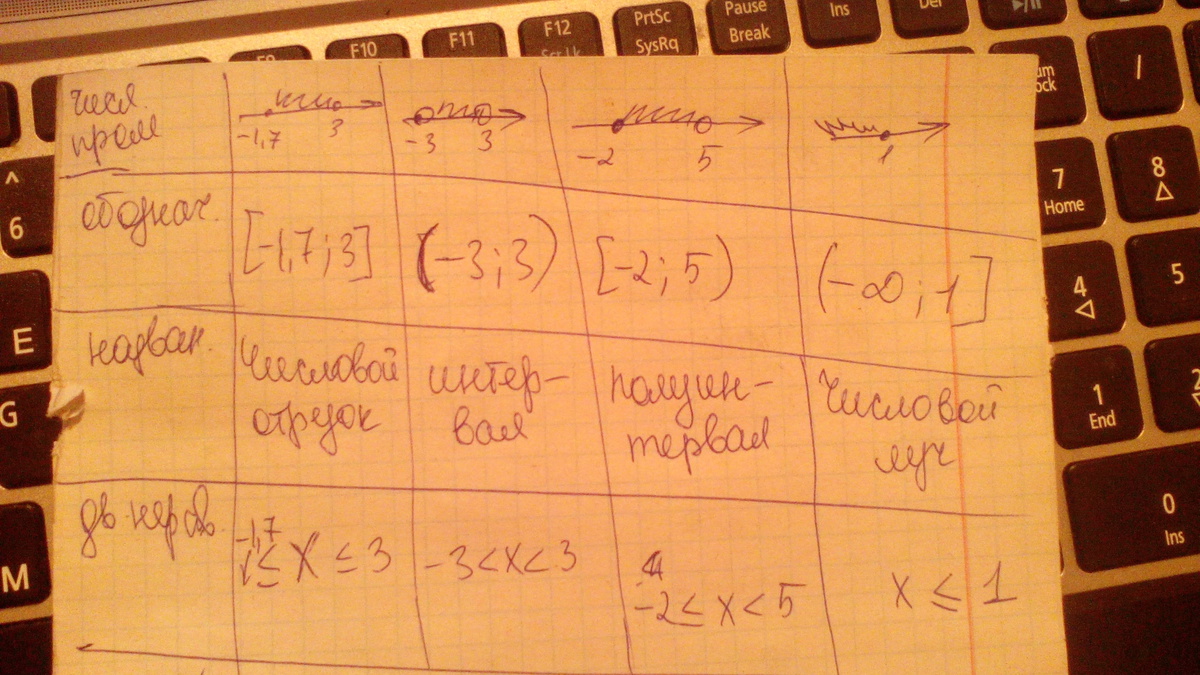 F9 F10 F11 F12 PrtSc Pause Ins Del
SysRq Break
числ.
пром
-1,7 3
-3 3
-2 5
1
обознач.
[-1,7; 3]
(-3; 3)
[-2; 5)
(-∞; 1]
назван.
Числовой
отрезок
интер-
вал
полуин-
тервал
Числовой
луч
дв. нер-в.
-1,7
≤ x ≤ 3
-3 < x < 3
-2 ≤ x < 5
x ≤ 1
^
6
E
G
M
/
7
Home
8
4
5
1
End
2
0
Ins